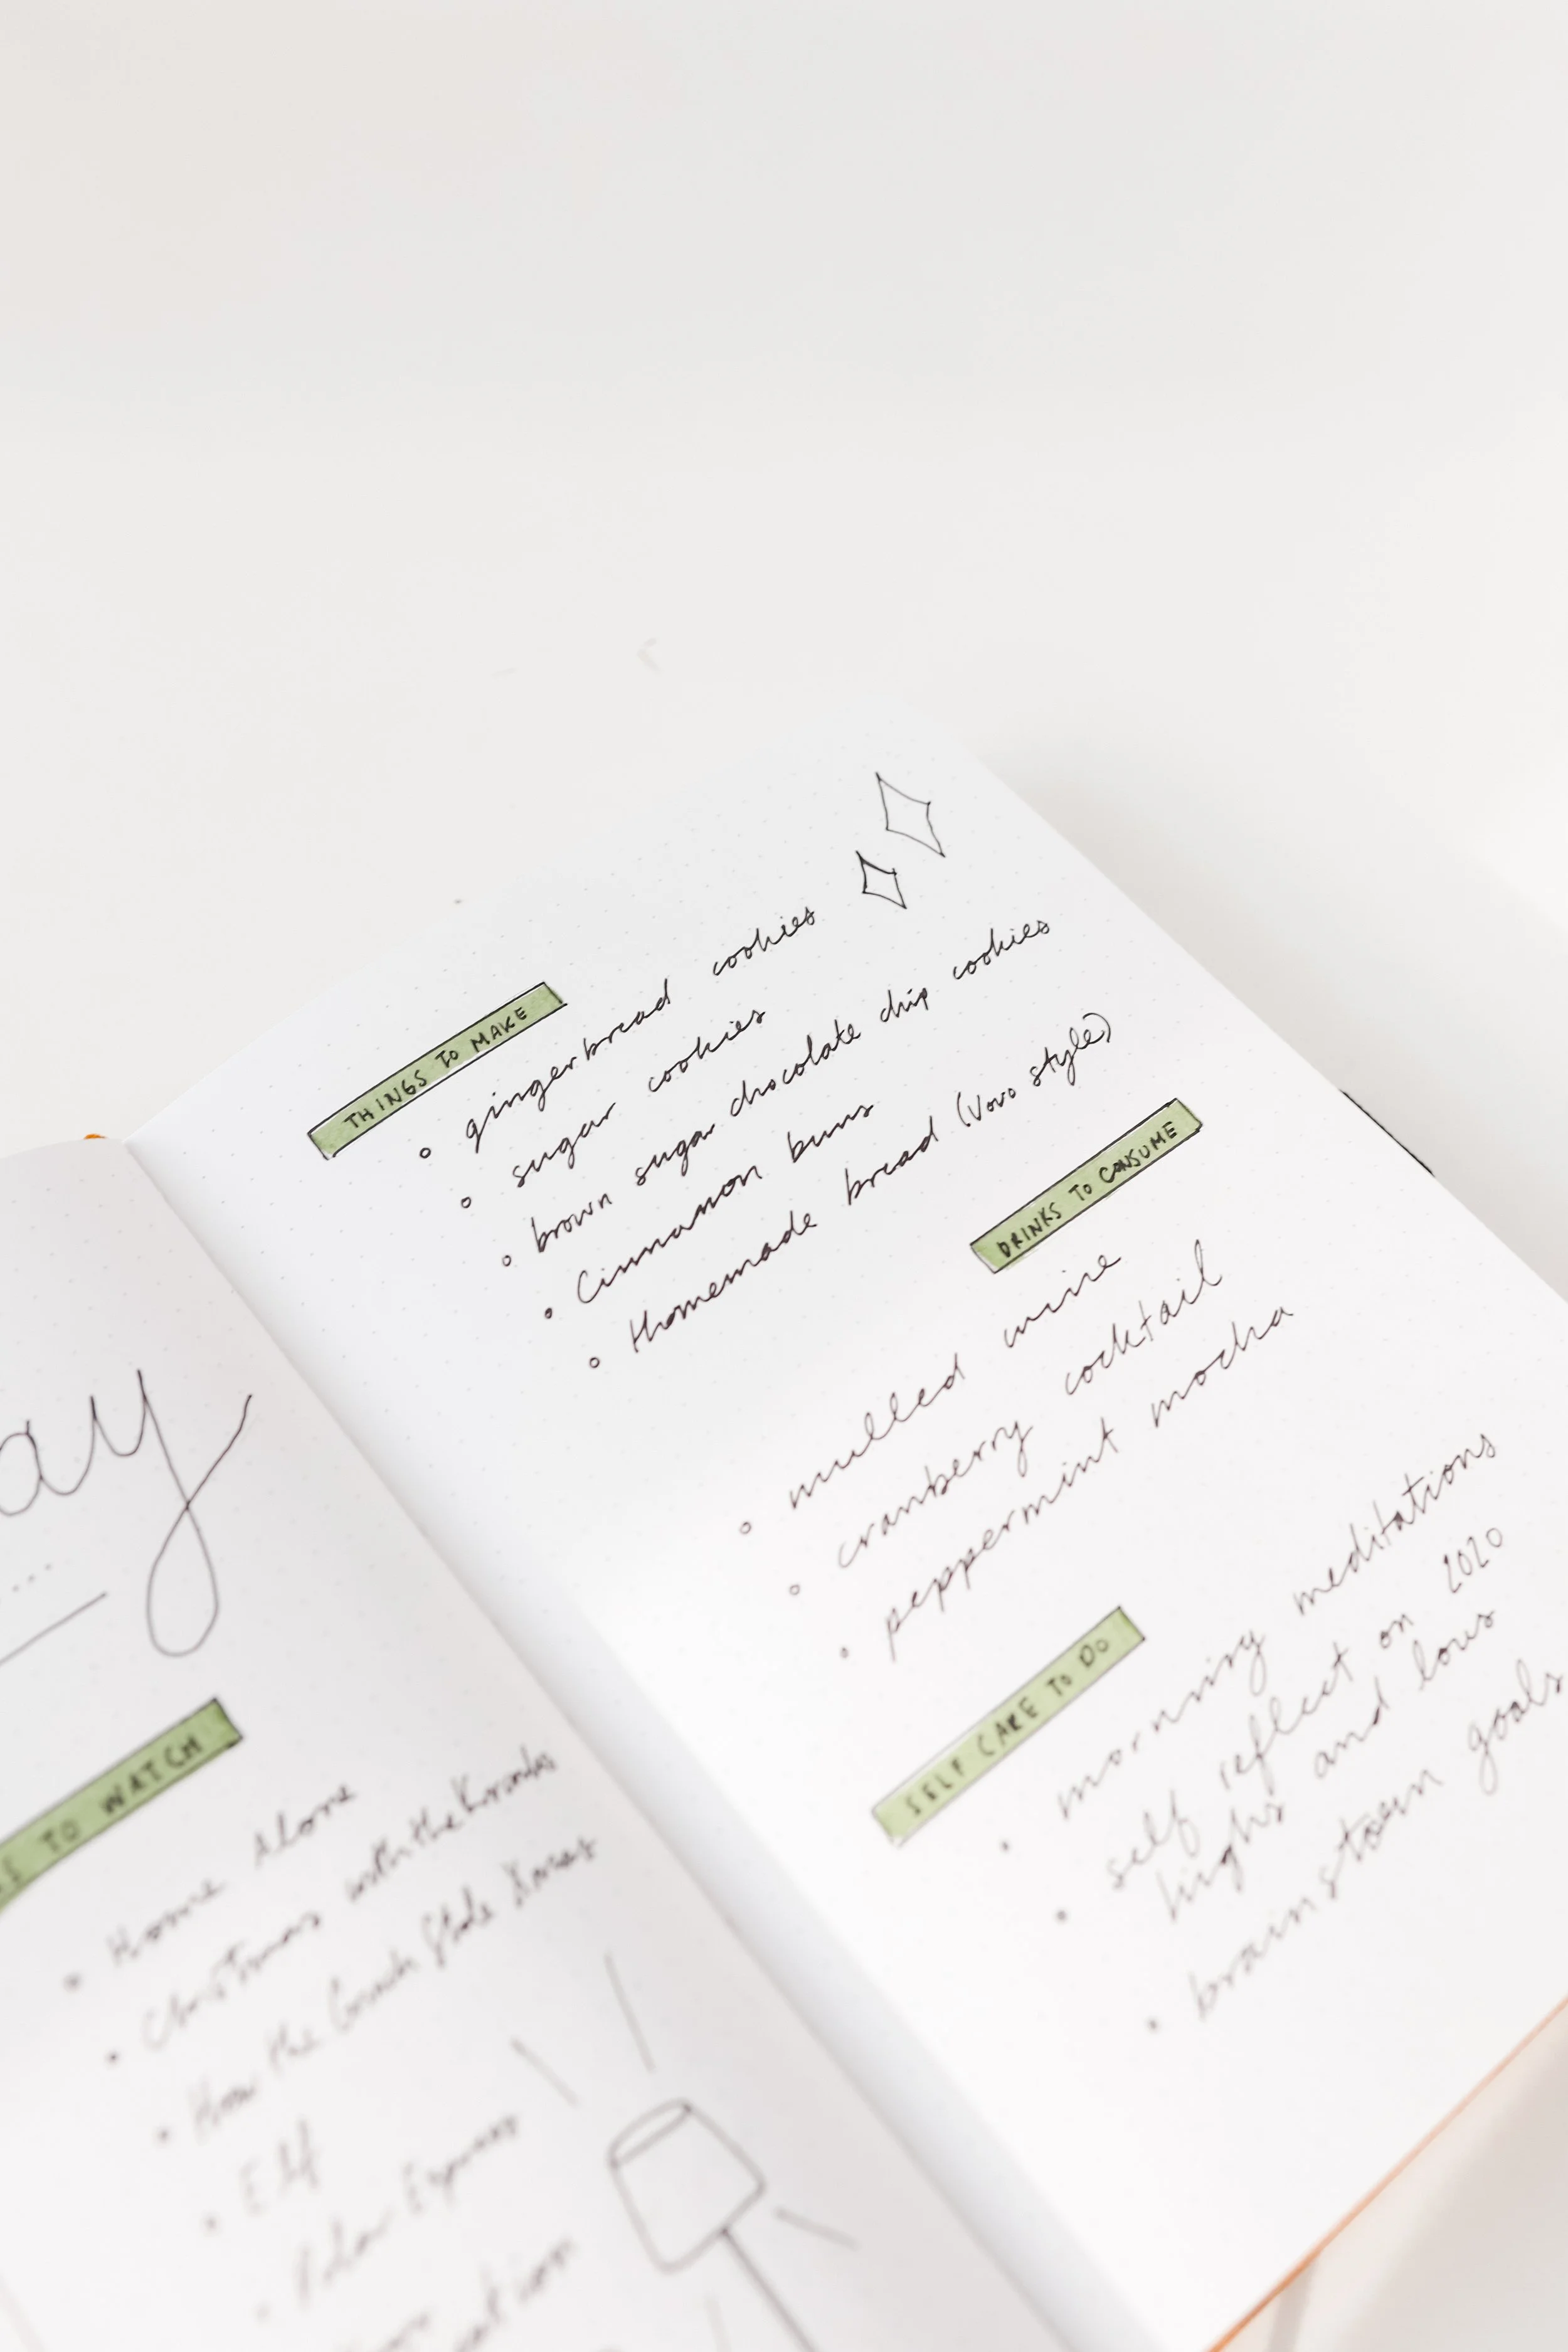 ay
TO WATCH
• Home Alone
• Christmas with the Kranks
• How the Grinch Stole Xmas
• Elf
• Polar Express
THINGS TO MAKE
◦ gingerbread cookies
◦ sugar cookies
◦ brown sugar chocolate chip cookies
◦ Cinnamon buns
◦ Homemade bread (Vovo style)
DRINKS TO CONSUME
◦ mulled wine
◦ cranberry cocktail
◦ peppermint mocha
SELF CARE TO DO
• morning meditations
• self reflect on 2020
highs and lows
• brainstorm goals